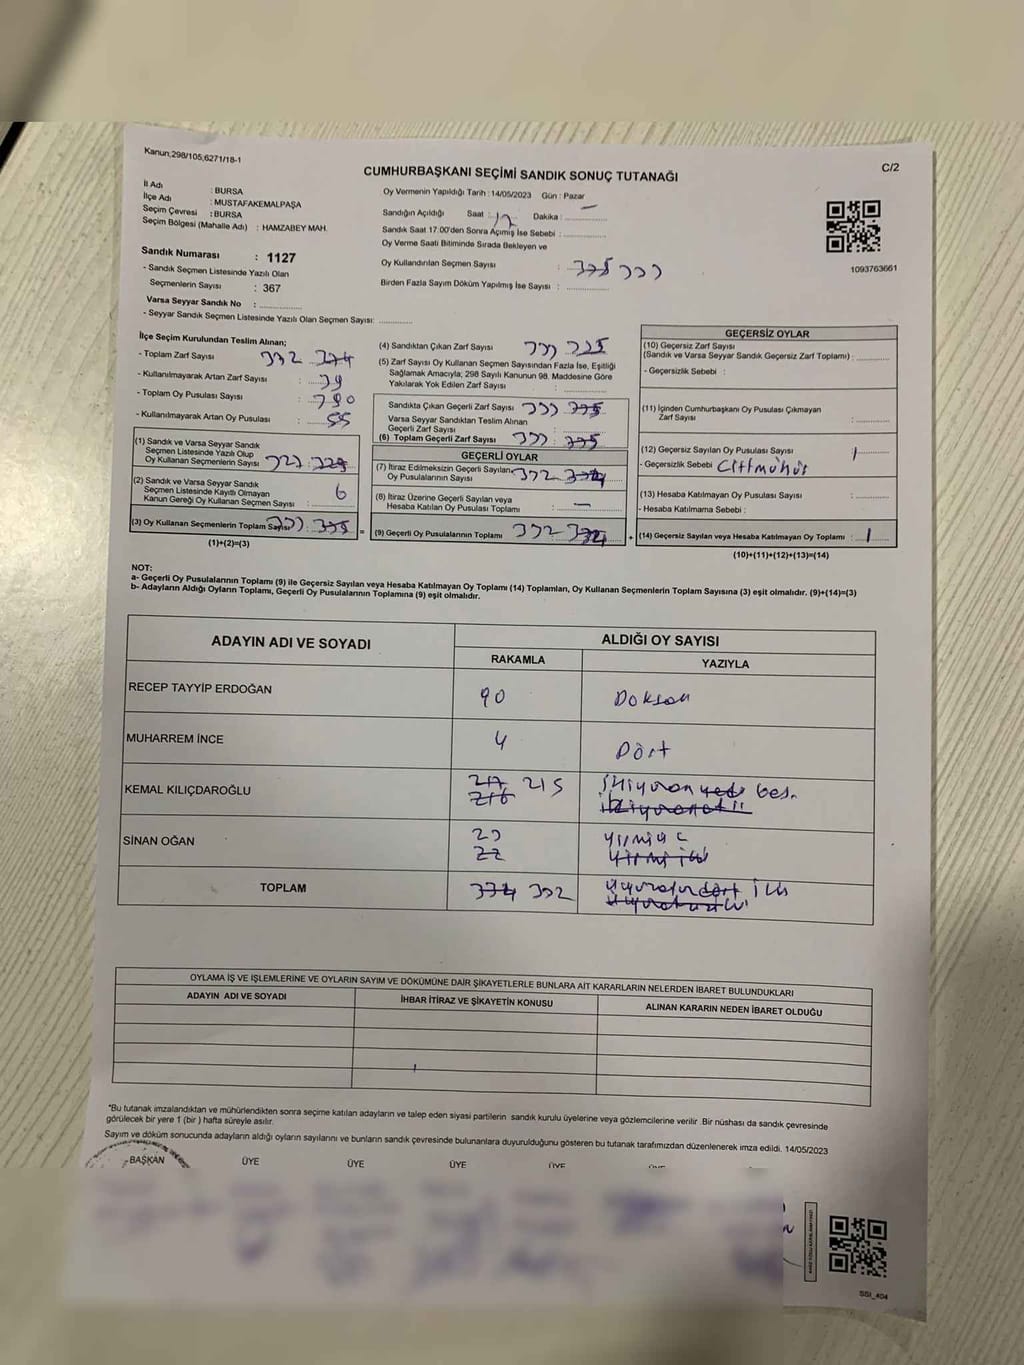 Kanun,298/105,6271/18-1
C/2
CUMHURBAŞKANI SEÇİMİ SANDIK SONUÇ TUTANAĞI
İl Adı : BURSA
İlçe Adı : MUSTAFAKEMALPAŞA
Seçim Çevresi : BURSA
Seçim Bölgesi (Mahalle Adı) : HAMZABEY MAH.
Oy Vermenin Yapıldığı Tarih : 14/05/2023 Gün : Pazar
Sandığın Açıldığı Saat : 17 Dakika : ..............
Sandık Saat 17:00'den Sonra Açımış İse Sebebi : ..............
Oy Verme Saati Bitiminde Sırada Bekleyen ve
Oy Kullandırılan Seçmen Sayısı : 335 333
Birden Fazla Sayım Döküm Yapılmış İse Sayısı : ..............
1093763661
Sandık Numarası : 1127
- Sandık Seçmen Listesinde Yazılı Olan
Seçmenlerin Sayısı : 367
Varsa Seyyar Sandık No : ..............
- Seyyar Sandık Seçmen Listesinde Yazılı Olan Seçmen Sayısı: ..............
İlçe Seçim Kurulundan Teslim Alınan;
- Toplam Zarf Sayısı 332 374
- Kullanılmayarak Artan Zarf Sayısı : 39
- Toplam Oy Pusulası Sayısı : 390
- Kullanılmayarak Artan Oy Pusulası : 55
(1) Sandık ve Varsa Seyyar Sandık
Seçmen Listesinde Yazılı Olup
Oy Kullanan Seçmenlerin Sayısı : 327 329
(2) Sandık ve Varsa Seyyar Sandık
Seçmen Listesinde Kayıtlı Olmayan
Kanun Gereği Oy Kullanan Seçmen Sayısı : 6
(3) Oy Kullanan Seçmenlerin Toplam Sayısı 333 335
(1)+(2)=(3)
(4) Sandıktan Çıkan Zarf Sayısı : 333 335
(5) Zarf Sayısı Oy Kullanan Seçmen Sayısından Fazla İse, Eşitliği
Sağlamak Amacıyla; 298 Sayılı Kanunun 98. Maddesine Göre
Yakılarak Yok Edilen Zarf Sayısı : ..............
Sandıkta Çıkan Geçerli Zarf Sayısı : 333 335
Varsa Seyyar Sandıktan Teslim Alınan
Geçerli Zarf Sayısı : ..............
(6) Toplam Geçerli Zarf Sayısı : 333 335
GEÇERLİ OYLAR
(7) İtiraz Edilmeksizin Geçerli Sayılan
Oy Pusulalarının Sayısı : 332 334
(8) İtiraz Üzerine Geçerli Sayılan veya
Hesaba Katılan Oy Pusulası Toplamı : —
(9) Geçerli Oy Pusulalarının Toplamı : 332 334
GEÇERSİZ OYLAR
(10) Geçersiz Zarf Sayısı
(Sandık ve Varsa Seyyar Sandık Geçersiz Zarf Toplamı) : ..............
- Geçersizlik Sebebi :
(11) İçinden Cumhurbaşkanı Oy Pusulası Çıkmayan
Zarf Sayısı : ..............
(12) Geçersiz Sayılan Oy Pusulası Sayısı : 1
- Geçersizlik Sebebi : Çiftmühür
(13) Hesaba Katılmayan Oy Pusulası Sayısı : ..............
- Hesaba Katılmama Sebebi :
(14) Geçersiz Sayılan veya Hesaba Katılmayan Oy Toplamı : 1
(10)+(11)+(12)+(13)=(14)
NOT:
a- Geçerli Oy Pusulalarının Toplamı (9) ile Geçersiz Sayılan veya Hesaba Katılmayan Oy Toplamı (14) Toplamları, Oy Kullanan Seçmenlerin Toplam Sayısına (3) eşit olmalıdır. (9)+(14)=(3)
b- Adayların Aldığı Oyların Toplamı, Geçerli Oy Pusulalarının Toplamına (9) eşit olmalıdır.
ADAYIN ADI VE SOYADI ALDIĞI OY SAYISI
RAKAMLA YAZIYLA
RECEP TAYYİP ERDOĞAN 90 Doksan
MUHARREM İNCE 4 Dört
KEMAL KILIÇDAROĞLU 217 215 ikiyüzonyedi beş.
216 ikiyüzonaltı
SİNAN OĞAN 23 yirmiüç
22 yirmi iki
TOPLAM 334 332 üçyüzotuzdört iki
OYLAMA İŞ VE İŞLEMLERİNE VE OYLARIN SAYIM VE DÖKÜMÜNE DAİR ŞİKAYETLERLE BUNLARA AİT KARARLARIN NELERDEN İBARET BULUNDUKLARI
ADAYIN ADI VE SOYADI İHBAR İTİRAZ VE ŞİKAYETİN KONUSU ALINAN KARARIN NEDEN İBARET OLDUĞU
*Bu tutanak imzalandıktan ve mühürlendikten sonra seçime katılan adayların ve talep eden siyasi partilerin sandık kurulu üyelerine veya gözlemcilerine verilir. Bir nüshası da sandık çevresinde
görülecek bir yere 1 (bir) hafta süreyle asılır.
Sayım ve döküm sonucunda adayların aldığı oyların sayılarını ve bunların sandık çevresinde bulunanlara duyurulduğunu gösteren bu tutanak tarafımızdan düzenlenerek imza edildi. 14/05/2023
BAŞKAN ÜYE ÜYE ÜYE ÜYE ÜYE
SSI_404